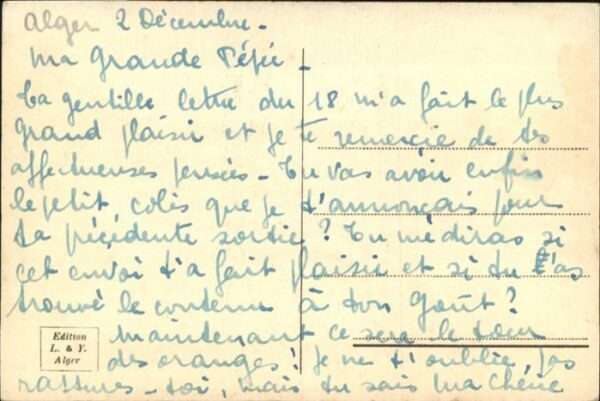 Alger 2 Décembre -
Ma Grande Pépée -
Ta gentille lettre du 18 m'a fait le plus
grand plaisir et je te remercie de tes
affectueuses pensées - Tu vas avoir enfin
le petit colis que je t'annonçais pour
ta précédente sortie ? Tu me diras si
cet envoi t'a fait plaisir et si tu l'as
trouvé le contenu à ton goût ?
Edition
L. & Y.
Alger
Maintenant ce sera le tour
des oranges ! Je ne t'oublie pas
rassures-toi, mais tu sais ma Chérie